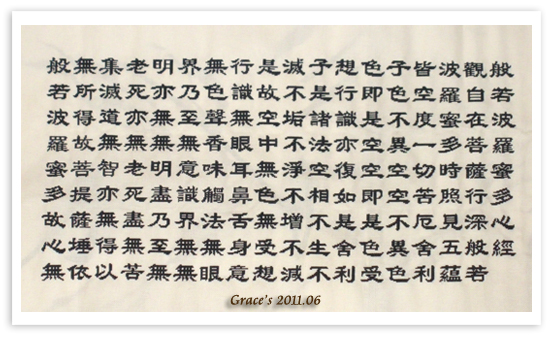 般若波羅蜜多心經
觀自在菩薩行深般若
波羅蜜多時照見五蘊
皆空度一切苦厄舍利
子色不異空空不異色
色即是空空即是色受
想行識亦復如是舍利
子是諸法空相不生不
滅不垢不淨不增不減
是故空中無色無受想
行識無眼耳鼻舌身意
無色聲香味觸法無眼
界乃至無意識界無無
明亦無無明盡乃至無
老死亦無老死盡無苦
集滅道無智亦無得以
無所得故菩提薩埵依
般若波羅蜜多故心無
Grace's 2011.06